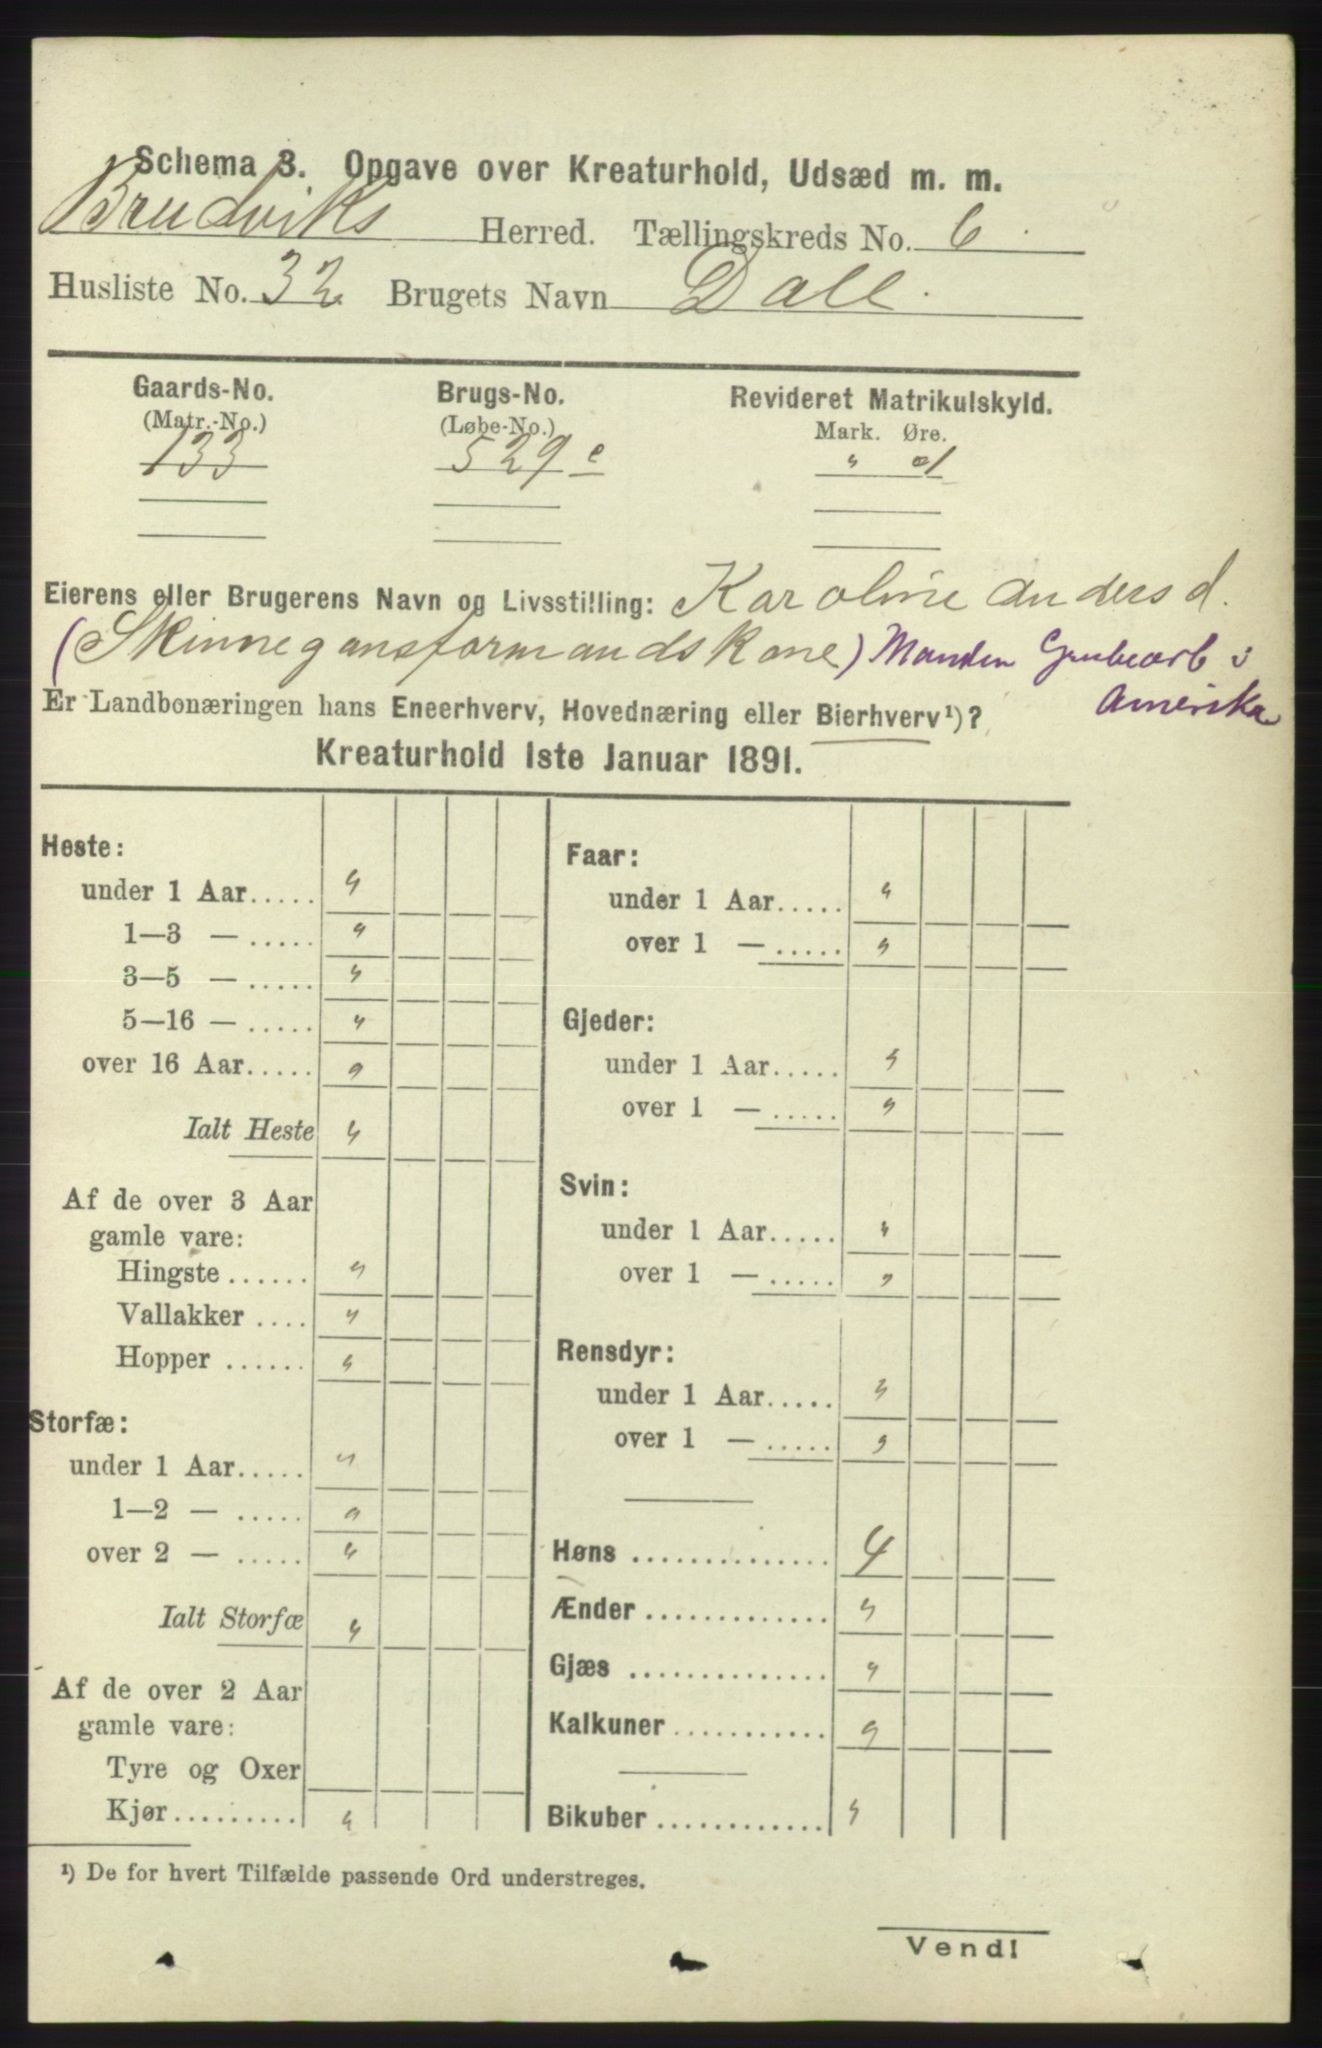 Schema 3. Opgave over Kreaturhold, Udsæd m. m.
Brudviks Herred. Tællingskreds No. 6.
Husliste No. 32 Brugets Navn Dale.
Gaards-No. Brugs-No. Revideret Matrikulskyld.
(Matr.-No.) (Løbe-No.) Mark. Øre.
133 529 e " 01
Eierens eller Brugerens Navn og Livsstilling: Karoline Andersd.
(Skinnegansformandskone) Manden Grubearb i
Amerika
Er Landbonæringen hans Eneerhverv, Hovednæring eller Bierhverv¹)?
Kreaturhold 1ste Januar 1891.
Heste:
under 1 Aar..... "
1—3 — ..... "
3—5 — ..... "
5—16 — ..... "
over 16 Aar..... "
Ialt Heste "
Af de over 3 Aar
gamle vare:
Hingste ...... "
Vallakker .... "
Hopper ...... "
Storfæ:
under 1 Aar..... "
1—2 — ..... "
over 2 — ..... "
Ialt Storfæ "
Af de over 2 Aar
gamle vare:
Tyre og Oxer
Kjør ......... "
Faar:
under 1 Aar..... "
over 1 — ..... "
Gjeder:
under 1 Aar..... "
over 1 — ..... "
Svin:
under 1 Aar..... "
over 1 — ..... "
Rensdyr:
under 1 Aar..... "
over 1 — ..... "
Høns .............. 4
Ænder ............. "
Gjæs .............. "
Kalkuner ........... "
Bikuber ............ "
¹) De for hvert Tilfælde passende Ord understreges.
Vend!